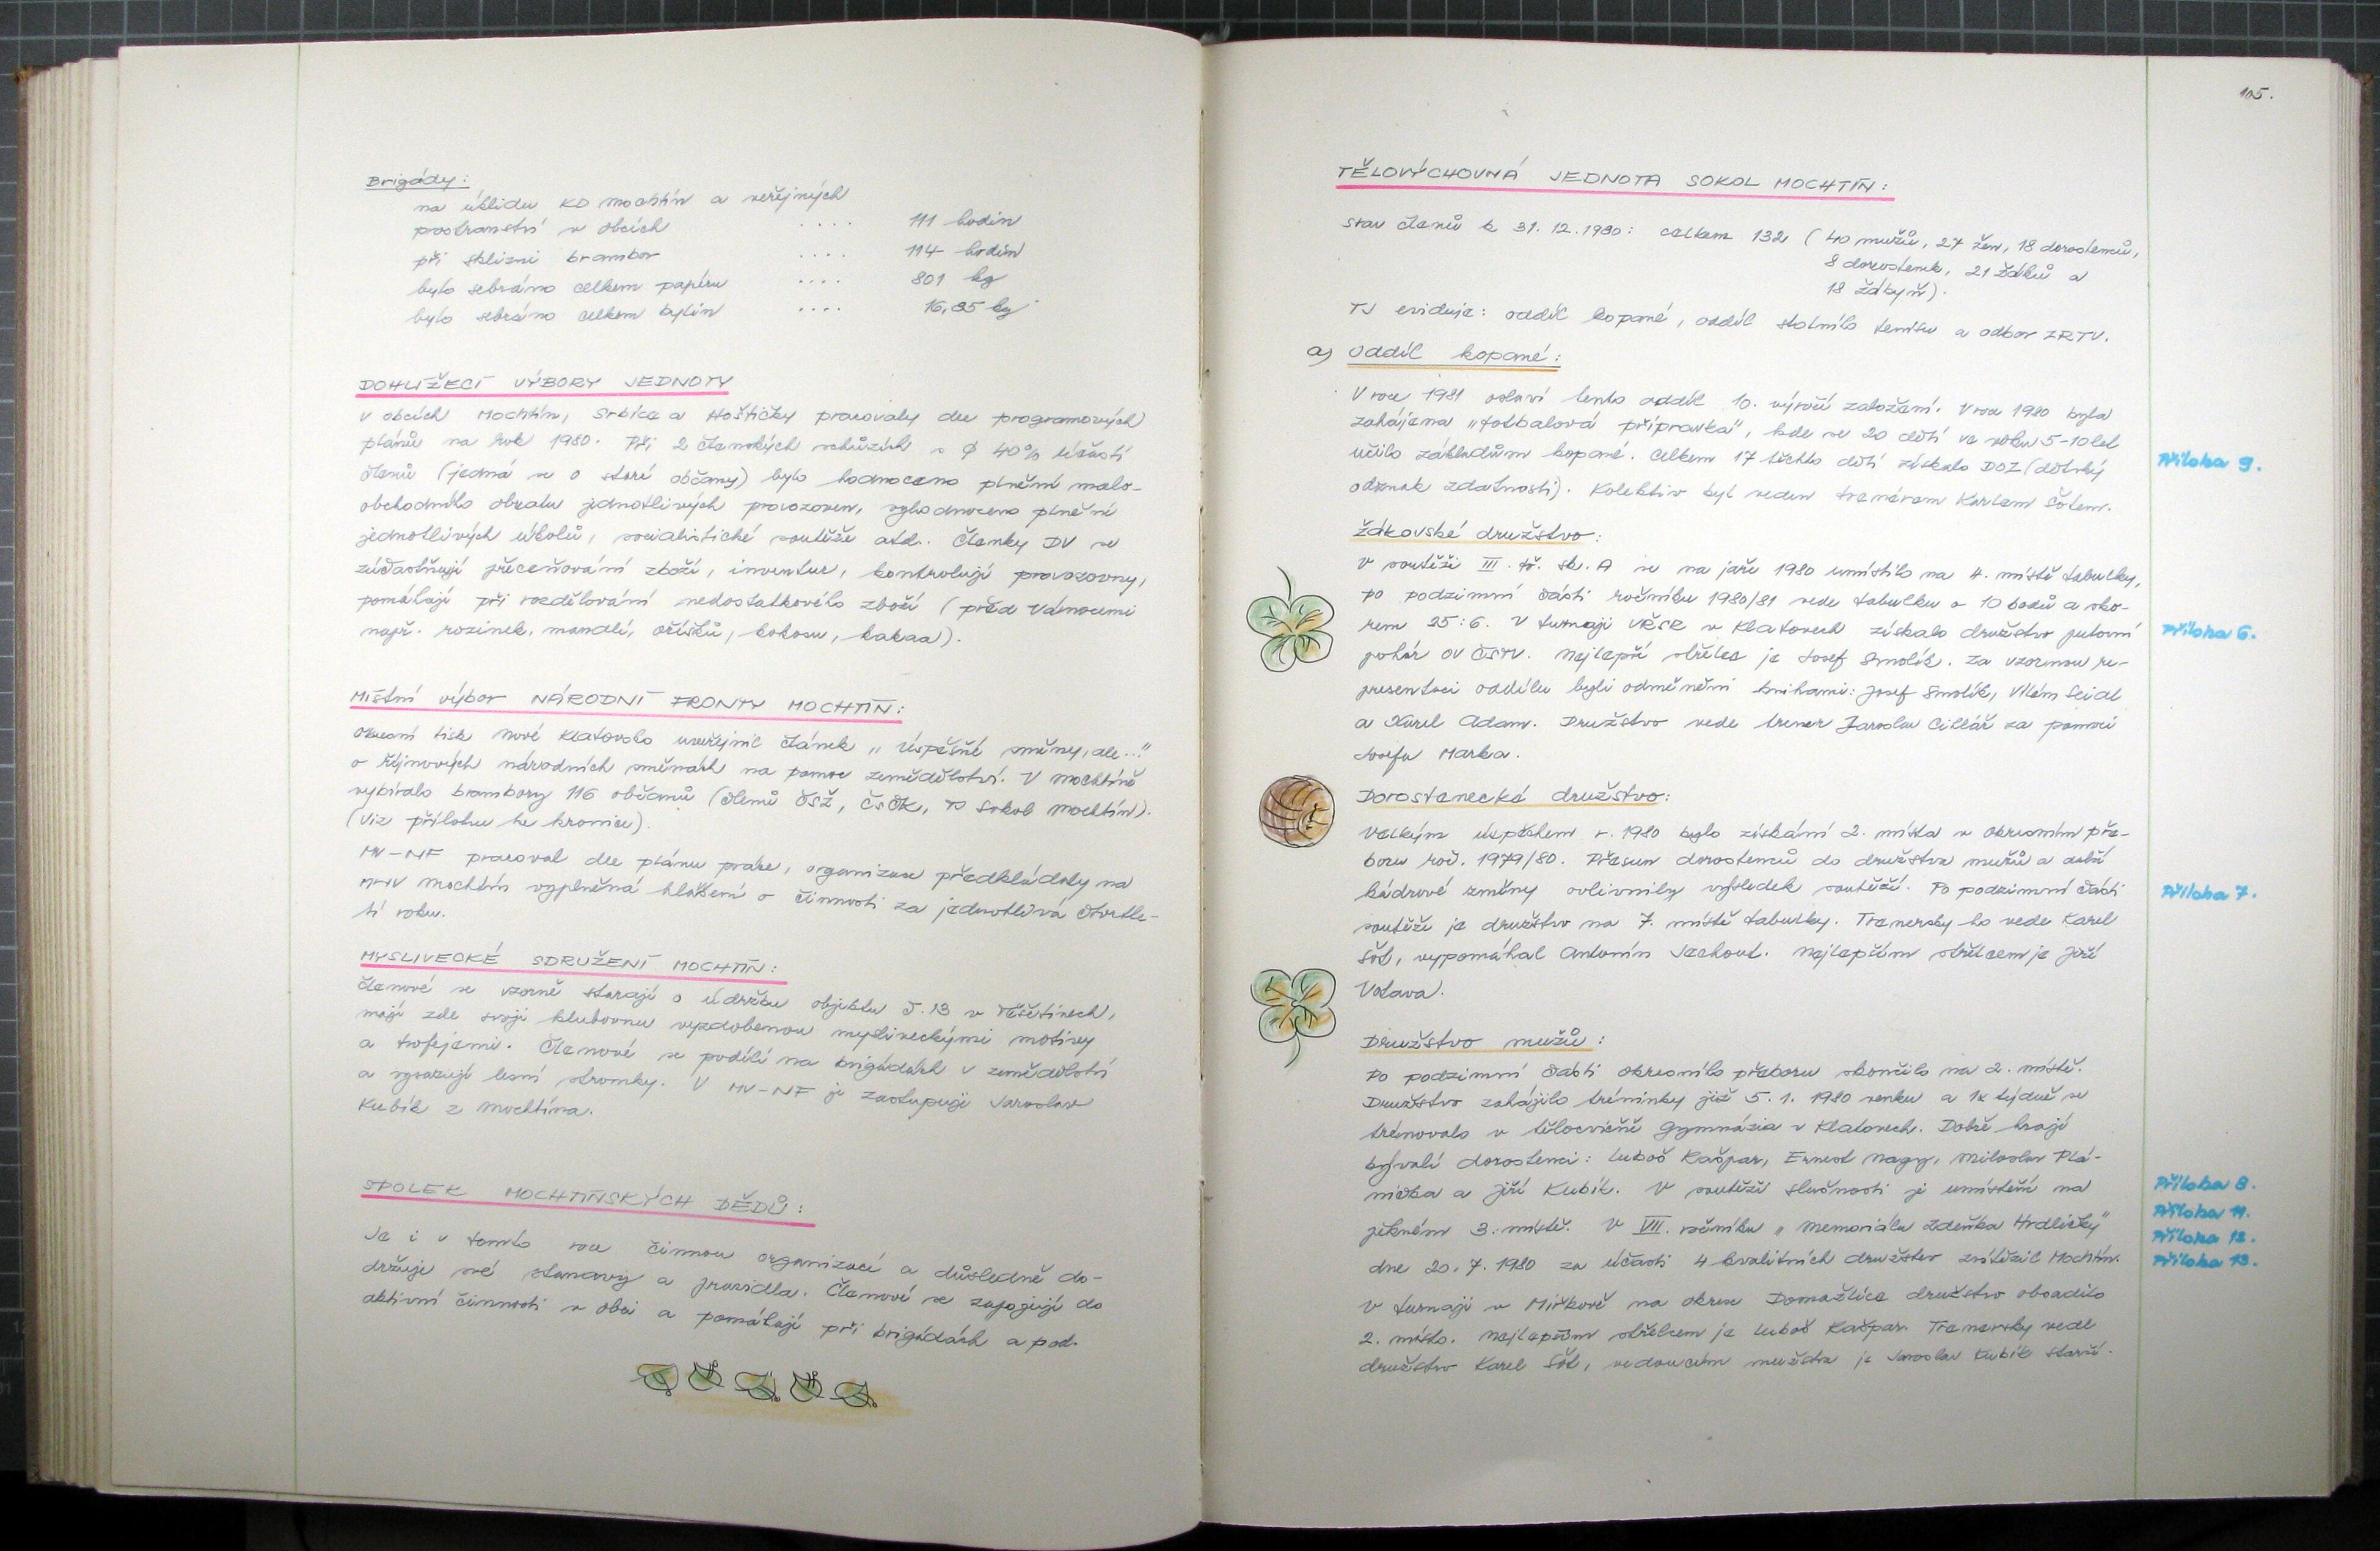 Brigády:
na úklidu KD Mochtín a veřejných
prostranství v obcích .... 111 hodin
při sklizni brambor .... 114 hodin
bylo sebráno celkem papíru .... 801 kg
bylo sebráno celkem bylin .... 16,85 kg
DOHLÍŽECÍ VÝBORY JEDNOTY
v obcích Mochtín, Srbice a Hoštičky pracovaly dle programových
plánů na rok 1980. Při 2 členských schůzích s Ø 40% účastí
členů (jedná se o staré občany) bylo hodnoceno plnění malo-
obchodního obratu jednotlivých provozoven, vyhodnoceno plnění
jednotlivých úkolů, socialistické soutěže atd.. Členky DV se
zúčastňují přeceňování zboží, inventur, kontrolují provozovny,
pomáhají při rozdělování nedostatkového zboží (před Vánocemi
např. rozinek, mandlí, oříšků, kokosu, kakaa).
Místní výbor NÁRODNÍ FRONTY MOCHTÍN:
Okresní tisk Nové Klatovsko uveřejnil článek „Úspěšné směny, ale..."
o říjnových národních směnách na pomoc zemědělství. V Mochtíně
vybíralo brambory 116 občanů (členů ČSŽ, ČsČK, TJ Sokol Mochtín).
(viz přílohu ke kronice).
MV-NF pracoval dle plánu práce, organizace předkládaly na
MNV Mochtín vyplněná hlášení o činnosti za jednotlivá čtvrtle-
tí roku.
MYSLIVECKÉ SDRUŽENÍ MOCHTÍN:
Členové se vzorně starají o údržbu objektu č. 13 v Těšetinech,
mají zde svoji klubovnu vyzdobenou mysliveckými motivy
a trofejemi. Členové se podílí na brigádách v zemědělství
a vysazují lesní stromky. V MV-NF je zastupuje Jaroslav
Kubík z Mochtína.
SPOLEK MOCHTÍNSKÝCH DĚDŮ:
Je i v tomto roce činnou organizací a důsledně do-
držuje své stanovy a pravidla. Členové se zapojují do
aktivní činnosti v obci a pomáhají při brigádách a pod.
105.
TĚLOVÝCHOVNÁ JEDNOTA SOKOL MOCHTÍN:
Stav členů k 31. 12. 1980: celkem 132 (40 mužů, 27 žen, 18 dorostenců,
8 dorostenek, 21 žáků a
18 žákyň).
TJ eviduje: oddíl kopané, oddíl stolního tenisu a odbor ZRTV.
a) Oddíl kopané:
V roce 1981 oslaví tento oddíl 10. výročí založení. V roce 1980 byla
zahájena „fotbalová přípravka", kde se 20 dětí ve věku 5-10 let
učilo základům kopané. Celkem 17 těchto dětí získalo DOZ (dětský
odznak zdatnosti). Kolektiv byl veden trenérem Karlem Šotem.
Příloha 9.
Žákovské družstvo:
V soutěži III. tř. sk. A se na jaře 1980 umístilo na 4. místě tabulky,
po podzimní části ročníku 1980/81 vede tabulku o 10 bodů a sko-
rem 35:6. V turnaji VŘSR v Klatovech získalo družstvo putovní
Příloha 6.
pohár OV ČSTV. Nejlepší střelec je Josef Smolík. Za vzornou re-
presentaci oddílu byli odměněni knihami: Josef Smolík, Vilém Seidl
a Karel Adam. Družstvo vede trener Jaroslav Cihlář za pomoci
Josefa Marka.
Dorostenecké družstvo:
Velkým úspěchem r. 1980 bylo získání 2. místa v okresním pře-
boru roč. 1979/80. Přesun dorostenců do družstva mužů a další
kádrové změny ovlivnily výsledek soutěží. Po podzimní části
Příloha 7.
soutěže je družstvo na 7. místě tabulky. Trenersky ho vede Karel
Šot, vypomáhal Antonín Jachout. Nejlepším střelcem je Jiří
Votava.
Družstvo mužů:
Po podzimní části okresního přeboru skončilo na 2. místě.
Družstvo zahájilo tréninky již 5. 1. 1980 venku a 1x týdně se
trénovalo v tělocvičně Gymnázia v Klatovech. Dobře hrají
bývalí dorostenci: Luboš Kašpar, Ernest Nagy, Miloslav Plá-
nička a Jiří Kubík. V soutěži slušnosti je umístění na
Příloha 8.
pěkném 3. místě. V VIII. ročníku „Memoriálu Zdeňka Hrdličky"
Příloha 11.
Příloha 12.
dne 20. 7. 1980 za účasti 4 kvalitních družstev zvítězil Mochtín.
Příloha 13.
V turnaji v Mířkově na okrese Domažlice družstvo obsadilo
2. místo. Nejlepším střelcem je Luboš Kašpar. Trenersky vede
družstvo Karel Šot, vedoucím mužstva je Jaroslav Kubík starší.